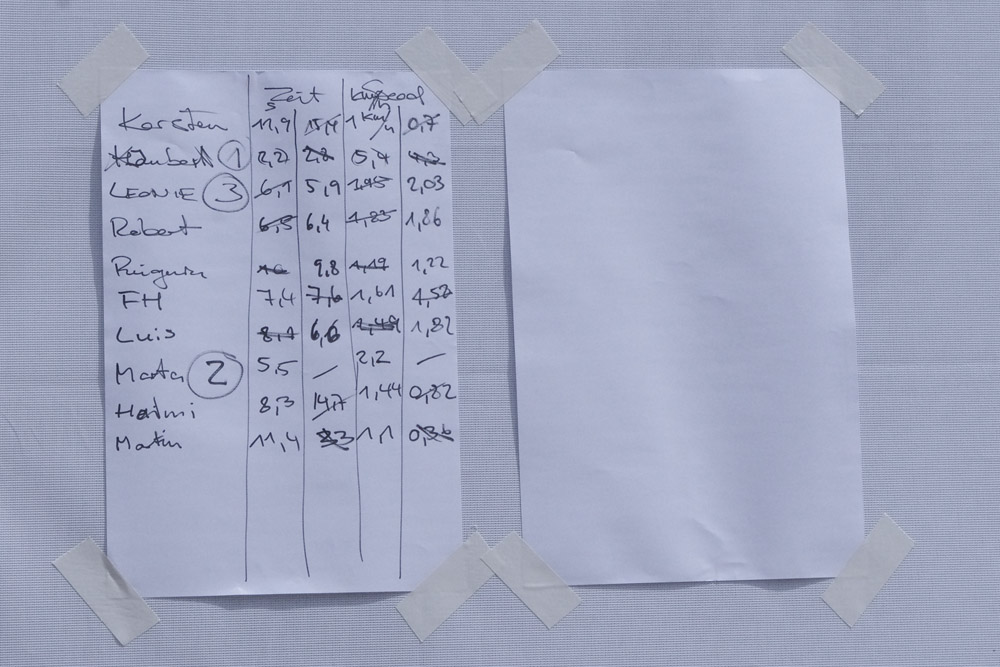 Zeit
s
Karsten 11,9 15,4 1 Km/h 0,7
1 2,2 2,8 5,4 4,2
LEONIE 3 6,1 5,9 1,95 2,03
Robert 6,5 6,4 1,85 1,86
10 9,8 1,19 1,22
FH 7,4 7,6 1,61 1,52
Luis 8,1 6,6 1,49 1,82
Marta 2 5,5 / 2,2 /
8,3 14,7 1,44 0,82
Martin 11,4 33 1,1 0,36